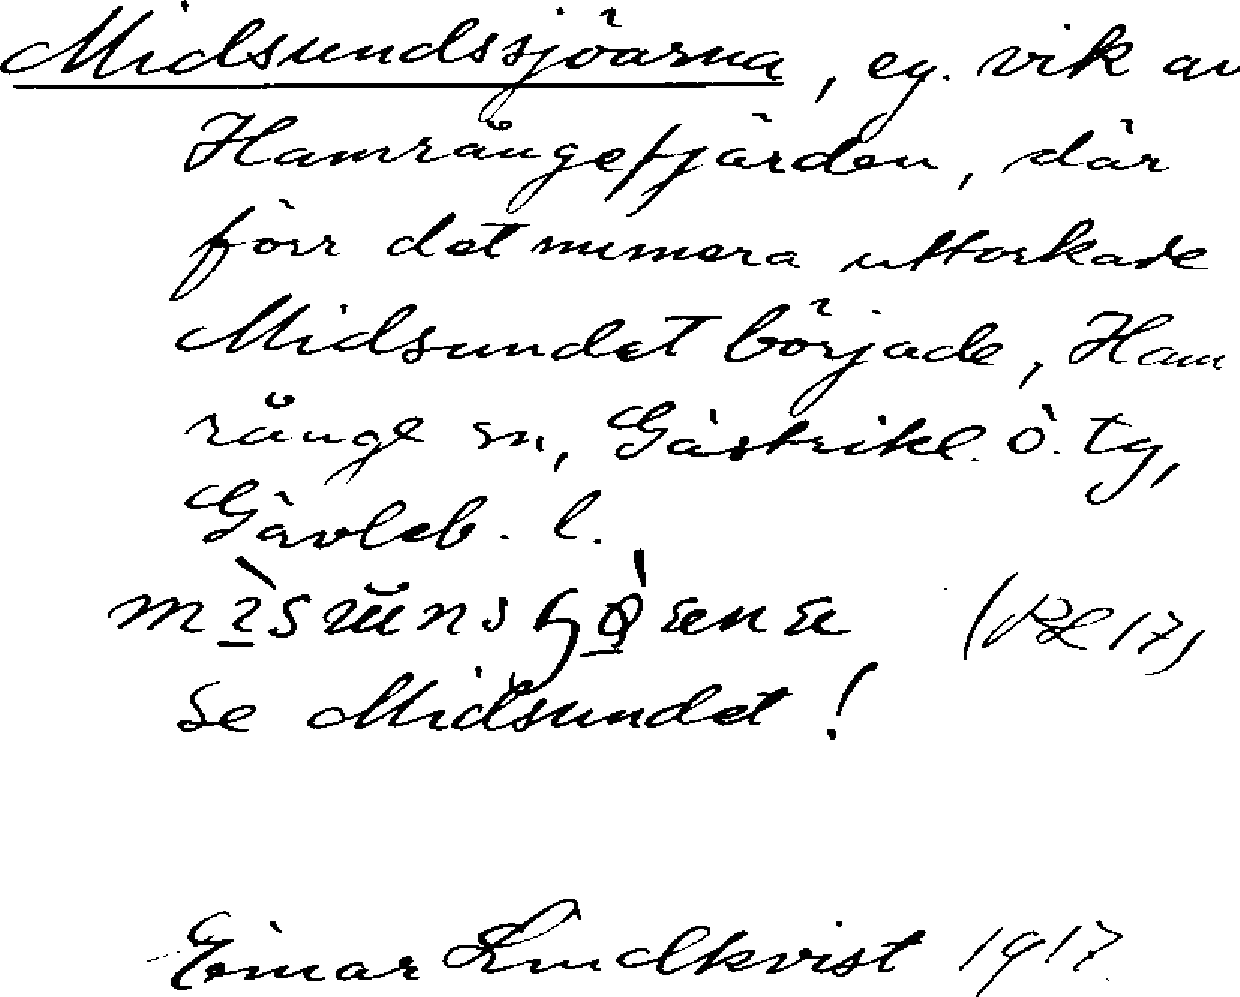 Midsundssjöarna, eg. vik av
Hamrångefjärden, där
förr det numera uttorkade
Midsundet började, Ham
rånge sn, Gästrikl. ö. tg,
Gävleb. l.
(RL 17)
Se Midsundet!
Einar Lindkvist 1917